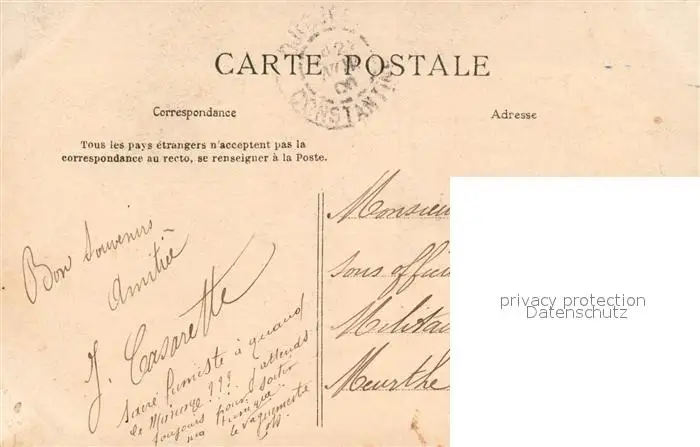 CARTE POSTALE
CONSTANTIN
Correspondance
Adresse
Tous les pays étrangers n'acceptent pas la
correspondance au recto, se renseigner à la Poste.
Bon Souvenirs
Amitié
J. Casarette
sacré fumiste à quand
le Mariage ???
toujours pour sortir
Monsieu
sous offici
Militai
Meurthe
privacy protection
Datenschutz